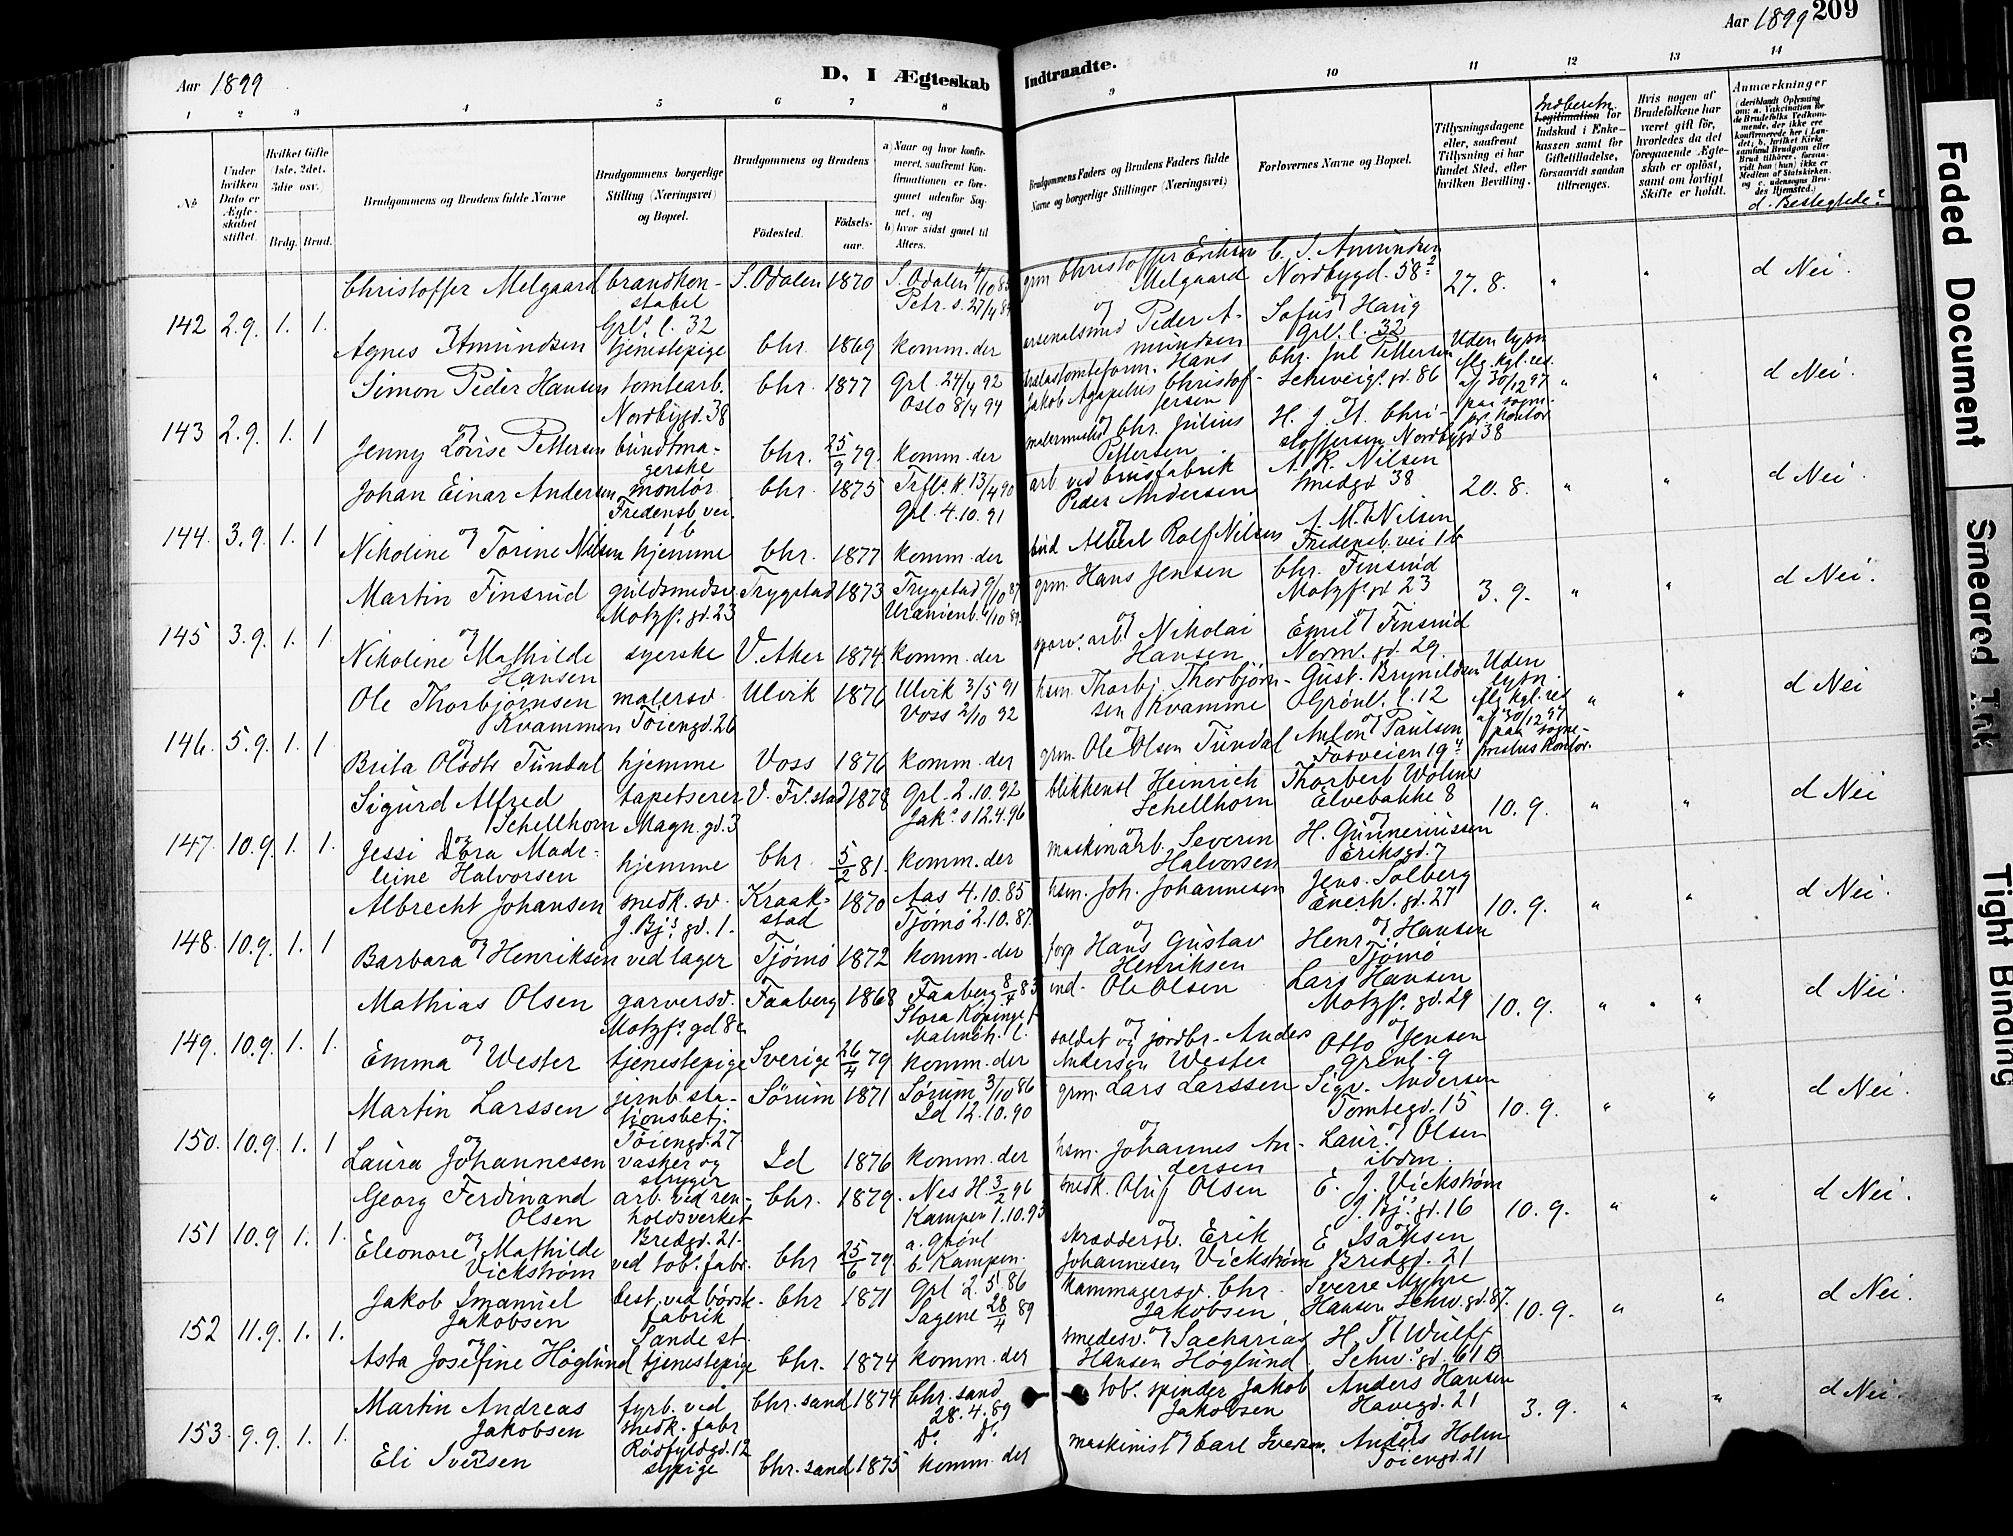 Aar 1899
D, I Ægteskab
Indtraadte.
Aar 1899 209
1 2 3 4 5 6 7 8 9 10 11 12 13 14
No
Under hvilken Dato er Ægteskabet stiftet.
Hvilket Gifte 1ste, 2det, 3die osv.
Brdg. Brud.
Brudgommens og Brudens fulde Navne
Brudgommens borgerlige Stilling (Næringsvei) og Bopæl.
Brudgommens og Brudens
Födested.
Födsels-aar.
a) Naar og hvor konfirmeret, saafremt Konfirmationen er foregaaet udenfor Sognet, og
b) hvor sidst gaaet til Alters.
Brudgommens Faders og Brudens Faders fulde Navne og borgerlige Stillinger (Næringsvei)
Forlovernes Navne og Bopæl.
Tillysningsdagene eller, saafremt Tillysning ei har fundet Sted, efter hvilken Bevilling.
Indberetn.
Legitimation for Indskud i Enkekassen samt for Giftetilladelse, forsaavidt saadan tiltrænges.
Hvis nogen af Brudefolkene har været gift för, hvorledes da det foregaaende Ægteskab er oplöst, samt om lovligt Skifte er holdt.
Anmærkninger
d. Beslegtede?
142 2.9. 1. 1.
Christoffer Melgaard brandkonstabel Grls. l. 32 S. Odalen 1870 S. Odalen 4/10 85 Petr. s. 27/4 89
grm Christoffer Eriksen Melgaard C. S. Amundsen Nordbygd. 58 27.8. " " d Nei.
og
Agnes Amundsen tjenestepige Chr. 1869 komm. der
arsenalsmed Peder Amundsen Sofus Haug Grl. l. 32
143 2.9. 1. 1
Simon Peder Hansen tomtearb. Nordbygd. 38 Chr. 1877 Grl. 24/4 92 Oslo 8/4 94
Hans Jakob Agapetus Christoffersen Chr. Jul Pettersen Schweigs. gd. 86 Uden lysn. eflg. kgl. res. af 30/12 97 paa sognepr. kontor " " d Nei.
og
Jenny Lovise Pettersen bundtmagerske Chr. 25/9 79. komm. der
malermester Chr. Julius Pettersen H. J. A. Christoffersen Nordbygd 38
144. 3.9. 1. 1
Johan Einar Andersen montör Fredensb. vei. 1b Chr. 1875 Trfl. k. 13/4 90 Grl. 4.10.91
arb. ved brusfabrik Peder Andersen A. R. Nilsen Smedgd 38 20.8. " " d Nei.
og
Nikoline Torine Nilsen hjemme Chr. 1877 komm. der
bud Albert Rolf Nilsen A. M. Nilsen Fredensb. vei 1b
145 3.9. 1. 1.
Martin Finsrud guldsmedsv. Motzfs. gd. 23 Trygstad 1873 Trygstad 9/10 87 Uranienb. 6/10 89.
grm. Hans Jensen Chr. Finsrud Motzfs gd 23 3.9. " " d Nei.
og
Nikoline Mathilde Hansen syerske V. Aker 1874 komm. der
sporv. arb. Nikolai Hansen Emil Finsrud Norm. gd. 29.
146. 5.9. 1. 1
Ole Thorbjörnsen Kvammen malersv. Töiengd. 26 Ulvik 1876 Ulvik 3/5 91 Voss 2/10 92
hsm. Thorbj. Thorbjörnsen Kvamme Gust. Brynildsen Grönl. l. 12 Uden lysn. eflg kgl. res af 30/12 97 paa sogneprestens kontor. " " d Nei
og
Brita Olsdtr Tundal hjemme Voss 1876 komm. der
grm. Ole Olsen Tundal Anton Paulsen Fosveien 19
147. 10.9. 1. 1.
Sigurd Alfred Schellhorn tapetserer Magn. gd. 3 V. Fr. stad 1878 Grl. 2.10.92 Jaks. 12.4.96
blikkensl Heinrich Schellhorn Thorbert Wolmer Elvebakke 8 10.9. " " d Nei
og
Jessi Dora Madeleine Halvorsen hjemme Chr. 5/2 81. komm. der
maskinarb. Severin Halvorsen H. Gunneriussen Eriksgd. 7
148. 10.9. 1. 1
Albrecht Johansen snedk. sv. J. Bjs gd. 1. Kraakstad 1870 Aas 4.10.85 Tjömö 2.10.87.
hsm. Joh. Johannesen Jens Solberg Enerh. gd. 27 10.9. " " d Nei.
og
Barbara Henriksen ved lager Tjömö 1872 komm. der
Hans Gustav Henriksen Henr. Hansen Tjömö
149. 10.9. 1. 1.
Mathias Olsen garversv. Motzfs. gd 8c Faaberg 1868 Faaberg 8/4 83 Stora Köpinge Malmöh. l.
ind. Ole Olsen Lars Hansen Motzfs. gd. 29 10.9. " " d Nei.
og
Emma Wester tjenestepige Sverige 26/4 79 komm. der
soldat og jordbr. Anders Andersen Wester Otto Jensen Grönl. 9
150. 10.9. 1. 1
Martin Larssen jernb. stationsbetj. Töiengd. 27 Sörum 1871 Sörum 3/10 86 Id 12.10.90
grm. Lars Larssen Sigv. Andersen Tomtegd. 15 10.9. " " d Nei.
og
Laura Johannesen vasker og stryger Id 1876 komm. der
hsm. Johannes Andersen Laur. Olsen ibdm.
151 10.9 1. 1.
Georg Ferdinand Olsen arb. ved renholdsverket Bredgd. 21. Chr. 1879. Nes H. 3/2 96 Kampen 1.10.93
snedk. Oluf Olsen E. J. Vickström J. Bjs. gd. 16 10.9. " " d Nei.
og
Eleonore Mathilde Vickström ved tob. fabr. Chr 25/6 79. a. Grönl b. Kampen.
skræddersv. Erik Johannesen Vickström E Isaksen Bredgd. 21
152 11.9. 1. 1.
Jakob Imanuel Jakobsen best. ved börstefabrik Sande st. Chr 1871 Grl. 2.5.86 Sagene 28/4 89
kammagersv. Chr. Jakobsen Sverre Myhre Hansen Schw. gd. 87. 10.9. " " d Nei.
og
Asta Josefine Höglund tjenestepige Chr. 1874 komm. der
smedesv. Sacharias Hansen Höglund H. A Wulff Schws. gd. 61 B
153. 9.9. 1. 1.
Martin Andreas Jakobsen fyrb. ved snedk. fabr Rödfyldgd. 12 Chr. sand 1874 Chr. sand 28.4.89 Do. Do.
tob. spinder Jakob Jakobsen Anders Hansen Havegd. 21 3.9. " " d Nei.
og
Eli Iversen sypige Chr. sand 1875 komm. der
maskinist Carl Iversen. Anders Holm Töiengd. 21
Faded Document
Smeared Ink
Tight Binding